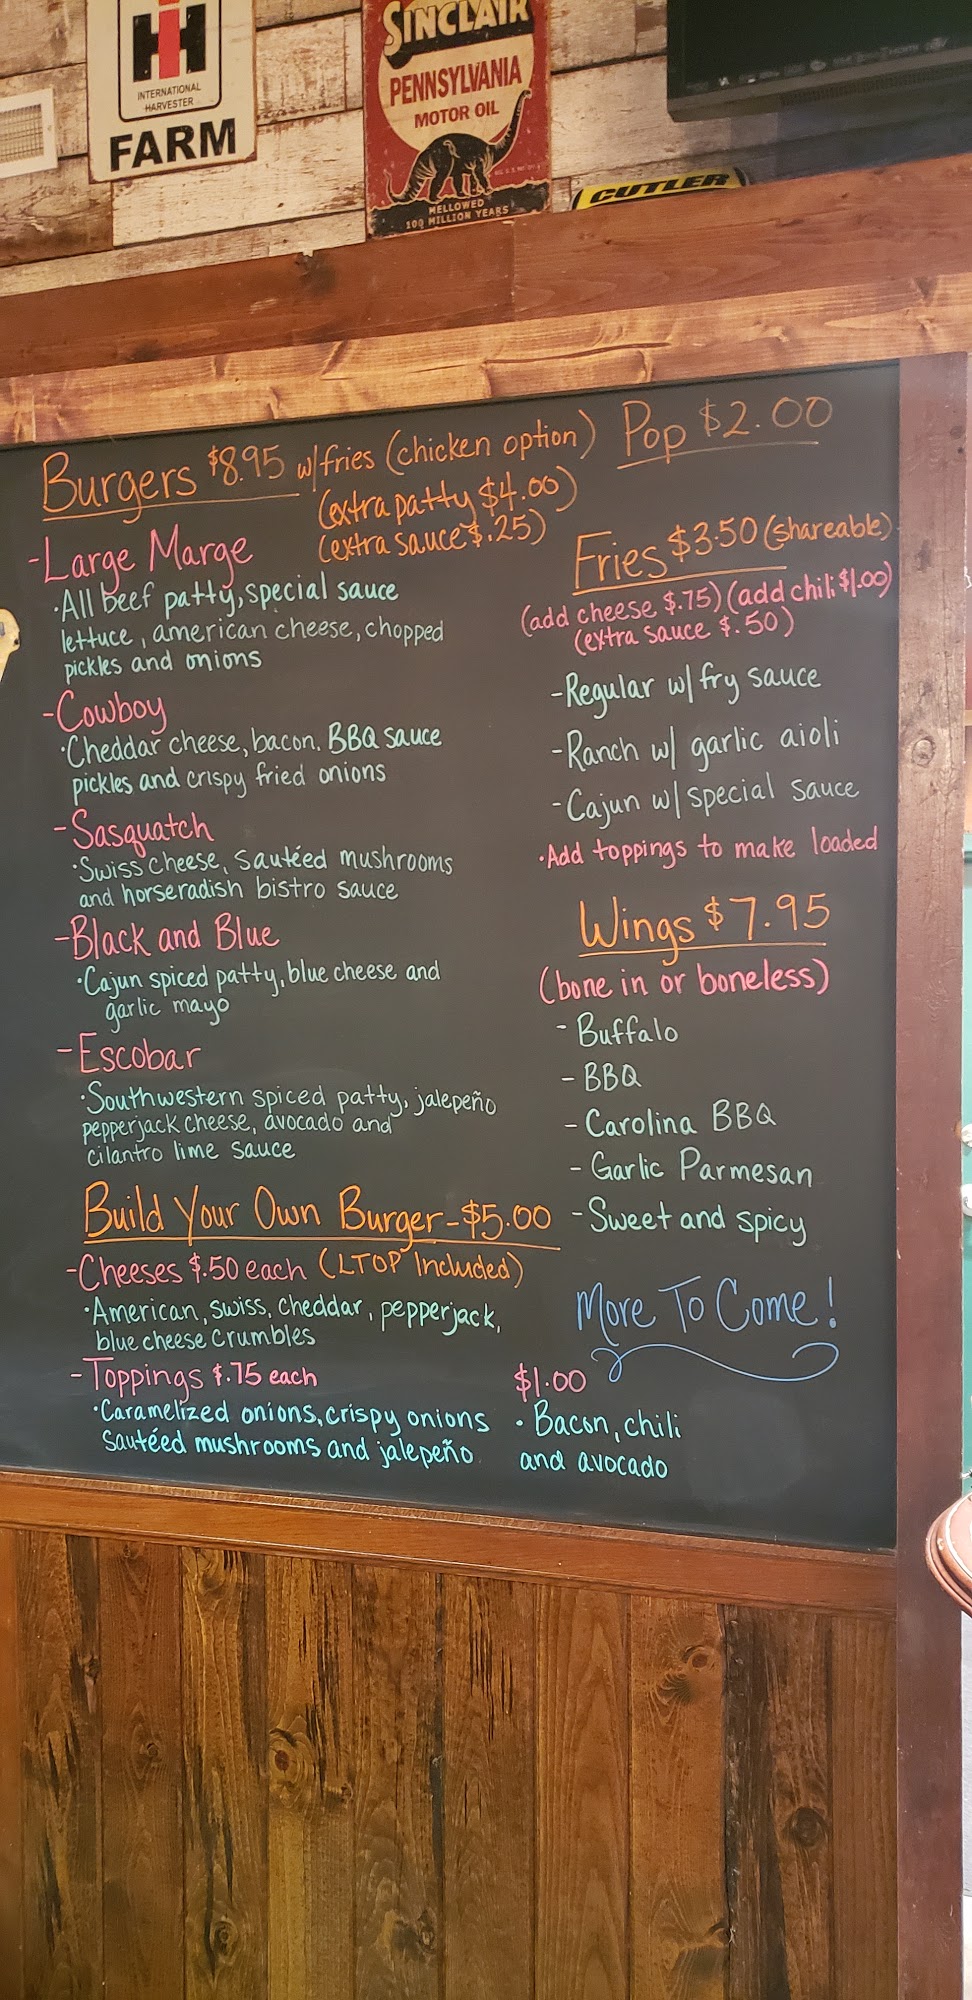 IH
INTERNATIONAL
HARVESTER
FARM
SINCLAIR
PENNSYLVANIA
MOTOR OIL
MELLOWED
100 MILLION YEARS
CUTLER
Burgers $8.95 w/fries (chicken option)
(extra patty $4.00)
(extra sauce $.25)
-Large Marge
·All beef patty, special sauce
lettuce, american cheese, chopped
pickles and onions
-Cowboy
·Cheddar cheese, bacon. BBQ sauce
pickles and crispy fried onions
-Sasquatch
·Swiss cheese, sautéed mushrooms
and horseradish bistro sauce
-Black and Blue
·Cajun spiced patty, blue cheese and
garlic mayo
-Escobar
·Southwestern spiced patty, jalepeño
pepperjack cheese, avocado and
cilantro lime sauce
Build Your Own Burger-$5.00
-Cheeses $.50 each (LTOP Included)
·American, swiss, cheddar, pepperjack,
blue cheese crumbles
-Toppings $.75 each
·Caramelized onions, crispy onions
sautéed mushrooms and jalepeño
$1.00
·Bacon, chili
and avocado
Pop $2.00
Fries $3.50 (shareable)
(add cheese $.75) (add chili $1.00)
(extra sauce $.50)
-Regular w/ fry sauce
-Ranch w/ garlic aioli
-Cajun w/ special sauce
·Add toppings to make loaded
Wings $7.95
(bone in or boneless)
- Buffalo
- BBQ
- Carolina BBQ
- Garlic Parmesan
- Sweet and spicy
More To Come!